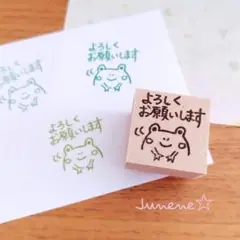 よろしく
お願いします
よろしく
お願いします
よろしく
お願いします
よろしく
お願いします
Junene☆